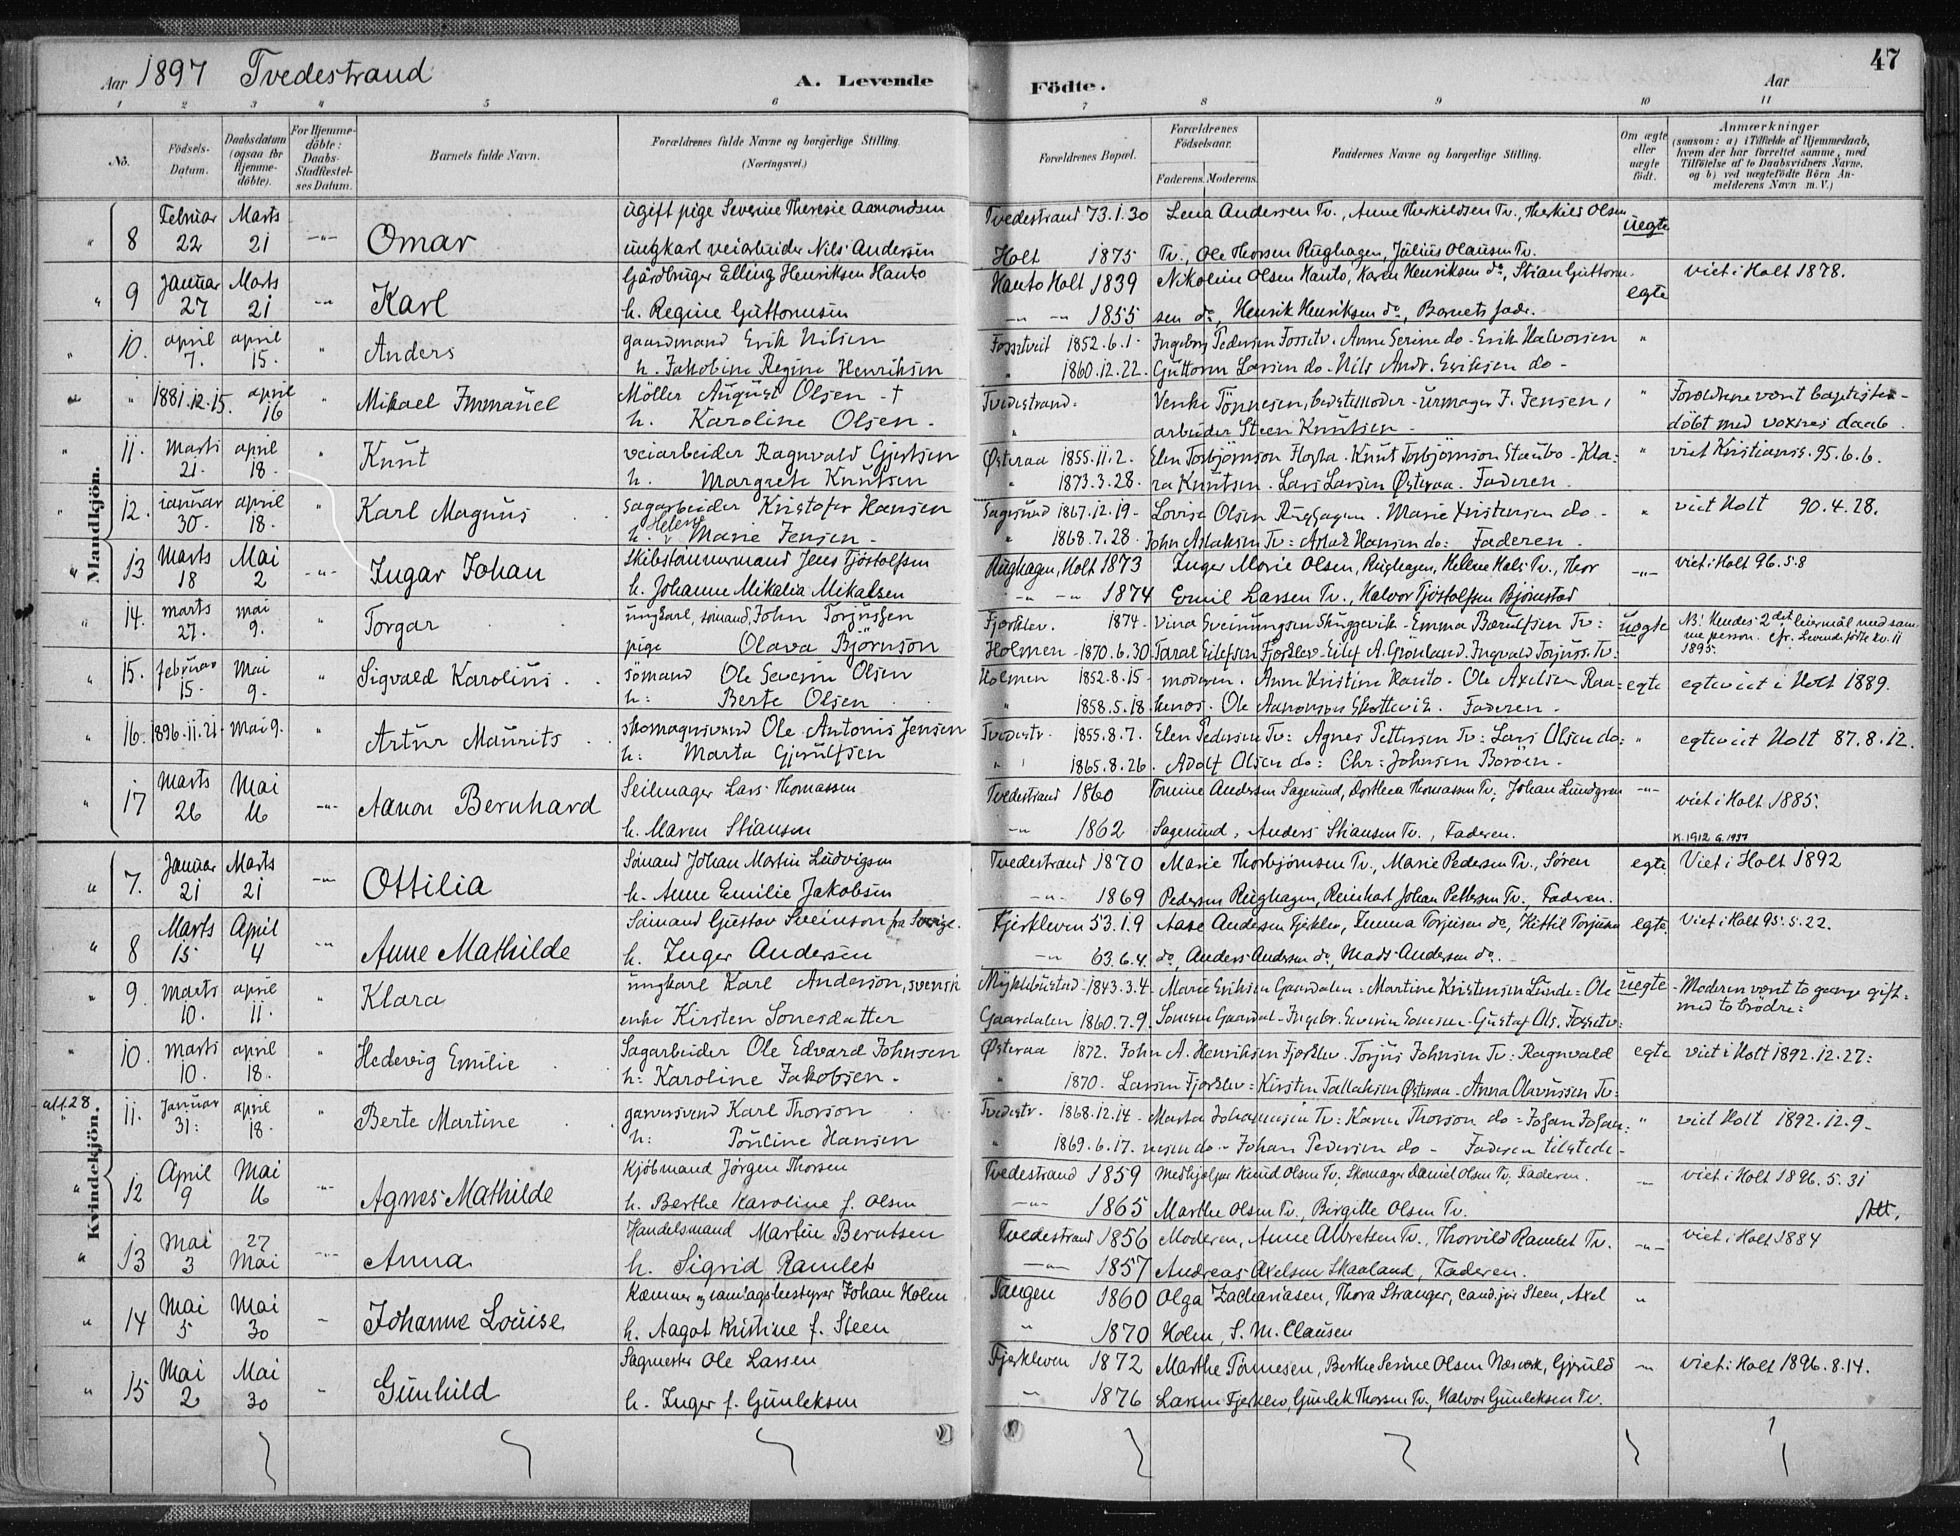 47
Aar 1897 Tvedestrand A. Levende Födte. Aar
1 2 3 4 5 6 7 8 9 10 11
No. Födsels-Datum. Daabsdatum (ogsaa for Hjemme-döbte). For Hjemme-döbte: Daabs-Stadfæstel-ses Datum. Barnets fulde Navn. Forældrenes fulde Navne og borgerlige Stilling. (Næringsvei.) Forældrenes Bopæl. Forældrenes Födselsaar. Faderens. Moderens. Faddernes Navne og borgerlige Stilling. Om ægte eller uægte födt. Anmærkninger (saasom: a) i Tilfælde af Hjemmedaab, hvem der har forrettet samme, med Tilföielse af to Daabsvidners Navne, og b) ved uægtefödte Börn Anmelderens Navn m. V.)
Mandkjön.
8 Februar 22 Marts 21 Omar ugift pige Severine Theresie Aamondsen Tvedestrand 73.1.30 Lena Andersen Tv., Anne Therkildsen Tv., Therkild Olsen uegte
ungkarl veiarbeider Nils Andersen Holt 1875 Tv., Ole Thorsen Rughagen, Julius Olausen Tv.
9 Januar 27 Marts 21 Karl Gårdbruger Elling Henriksen Hauto Hauto Holt 1839 Nikoline Olsen Hauto, Karen Henriksen do, Stian Guttorm- egte viet i Holt 1878.
h. Regine Guttormsen 1855 sen do, Henrik Henriksen do, Barnets fader.
10. april 7. april 15. Anders gaardmand Erik Nilsen Fossetveit 1852.6.1. Ingeborg Pedersen Fossetv. Anne Serine do - Erik Halvorsen
h. Jakobine Regine Henriksen 1860.12.22. Guttorm Larsen do. Nils Andr. Eriksen do -
1881.12.15. april 16 Mikael Immanuel Möller August Olsen - † Tvedestrand. Venke Tönnesen, bedstemoder - urmager F. Jensen, Foreldrene vont baptister -
h. Karoline Olsen. arbeider Steen Knutsen - döbt med voxnes daab.
11. Marts 21. april 18. Knut veiarbeider Ragnvald Gjertsen Østeraa 1855.11.2. Elen Torbjörnson Flosta. Knut Torbjörnson Staubo - Kla: viet Kristianss. 95.6.6.
h. Margrete Knutsen 1873.3.28. ra Knutsen. Lars Larsen Østeraa. Faderen.
12. januar 30. april 18. Karl Magnus Sagarbeider Kristofer Hansen Sagesund 1867.12.19. Lovise Olsen Rughagen. Marie Kristensen do - viet Holt 90.4.28.
h. Helene Marie Jensen. 1868.7.28. John Aslaksen Tv: Aslak Hansen do: Faderen.
13 Marts 18 Mai 2 Ingar Johan Skibstømmermand Jens Tjöstolfsen Rughagen, Holt 1873 Inger Marie Olsen, Rughagen, Hellene Hals Tv., Thor viet i Holt 96.5.8
h. Johanne Mikalia Mikalsen 1874 Emil Larsen Tv., Halvor Tjöstolfsen Bjönnstad
14. marts 27. mai 9. Torgar ungkarl, sömand, John Torjussen Fjærklev. 1874. Vina Sveinungsen Skuggevik - Emma Bærulfsen Tv: uegte NB! Kendes 2det leiermål med sam-
pige Olava Björnson Holmen - 1870.6.30 Taral Eilefsen Fjerklev - Eilef A. Grönland. Ingvald Torjuss. Tv: me person. cfr. Levende födte kv. 11 1895.
15. februar 15. Mai 9. Sigvald Karolius sömand Ole Severin Olsen Holmen 1852.8.15 moderen. Anne Kristine Hauto. Ole Axelsen Raa- egte egteviet i Holt 1889.
h: Berte Olsen 1858.5.18. Ole Aanonsen Skottevik. Faderen.
16. 1896.11.21. Mai 9. Artur Maurits skomagersvend Ole Antonis Jensen Tvedestr. 1855.8.7. Elen Pedersen Tv: Agnes Pettersen Tv: Lars Olsen do: egteviet Holt 87.8.12.
h: Marta Gjerulfsen 1865.8.26. Adolf Olsen do: Chr: Johnsen Boröen.
17 Marts 26 Mai 16 Aanon Bernhard Seilmager Lars Thomassen Tvedestrand 1860 Tomine Andersen Sagesund, Dorthea Thomassen Tv., Johan Lundgren viet i Holt 1885.
h. Maren Stiansen 1862 Sagesund, Anders Stiansen Tv., Faderen. K.1912 G.1937
Kvindekjön.
7. Januar 21 Marts 21 Ottilia Sömand Johan Martin Ludvigsen Tvedestrand 1870 Marie Thorbjørnsen Tv., Marie Pedersen Tv., Søren egte Viet i Holt 1892
h. Anne Emilie Jakobsen 1869 Pedersen Rughagen, Reinhart Johan Pettersen Tv., Faderen.
8 Marts 15 April 4 Anne Mathilde Sömand Gustav Sveinson fra Sverige. Fjerkleven 53.1.9 Aase Andersen Fjerklev, Emma Torjusen do, Kittil Torjusen egte. Viet i Holt 95.5.22.
h. Inger Andersen 63.6.4. do, Anders Andersen do, Mads Andersen do.
9. Marts 10. april 11. Klara ungkarl Karl Anderson, svensk Myklebustad - 1843.3.4. Marie Eriksen Gaardalen - Martine Kristensen Lunde - Ole uegte - Moderen vont to gange gift=
enke Kirsten Sonesdatter Gaardalen 1860.7.9. Sonesen Gaardal - Ingebr. Severin Sonesen - Gustaf Ols. Fossetv: med to brödre:
10. Marts 10. april 18. Hedevig Emilie Sagarbeider Ole Edvard Johnsen Østeraa 1872. John A. Henriksen Fjerklev. Torjus Johnsen Tv: Ragnvald egte viet i Holt 1892.12.27:
h: Karoline Jakobsen. 1870. Larsen Fjerklev: Kirsten Tallaksen Østeraa. Anna Olavussen Tv:
att. 28 11. Januar 31: april 18. Berte Martine garversvend Karl Thorson Tvedestr. 1868.12.14 - Marta Johannesen Tv: Karen Thorson do = Johan Johan: viet Holt 1892.12.9
h: Pouline Hansen 1869.6.17. nesen do - Johan Pedersen do - Faderen tilstede -
12 April 9 Mai 16 Agnes Mathilde Kjöbmand Jörgen Thorsen Tvedestrand 1859 Medhjelper Knud Olsen Tv. Skomager Daniel Olsen Tv., Faderen. viet i Holt 1896.5.31
h. Berthe Karoline f. Olsen 1865 Marthe Olsen Tv., Birgitte Olsen Tv. Att.
13 Mai 3 27 Mai Anna Handelsmand Martin Berntsen Tvedestrand 1856 Moderen, Anne Albretsen Tv., Thorvild Ramlet Tv. viet i Holt 1884
h. Sigrid Ramlet 1857 Andreas Axelsen Skaaland, Faderen.
14 Mai 5 Mai 30 Johanne Louise Kæmner og samlagsbestyrer Johan Holm Tangen 1860 Olga Zachariasen, Thora Stranger, cand. jur Steen, Axel
h. Aagot Kristine f. Steen 1870 Holm, S. M. Clausen
15 Mai 2 Mai 30 Gunhild Sagmester Ole Larsen Fjerkleven 1872 Marthe Tönnesen, Berthe Serine Olsen Næsverk, Gjeruld viet i Holt 1896.8.14.
h. Inger f. Gunleksen 1876 Larsen Fjerklev, Gunlek Thorsen Tv., Halvor Gunleksen Tv.